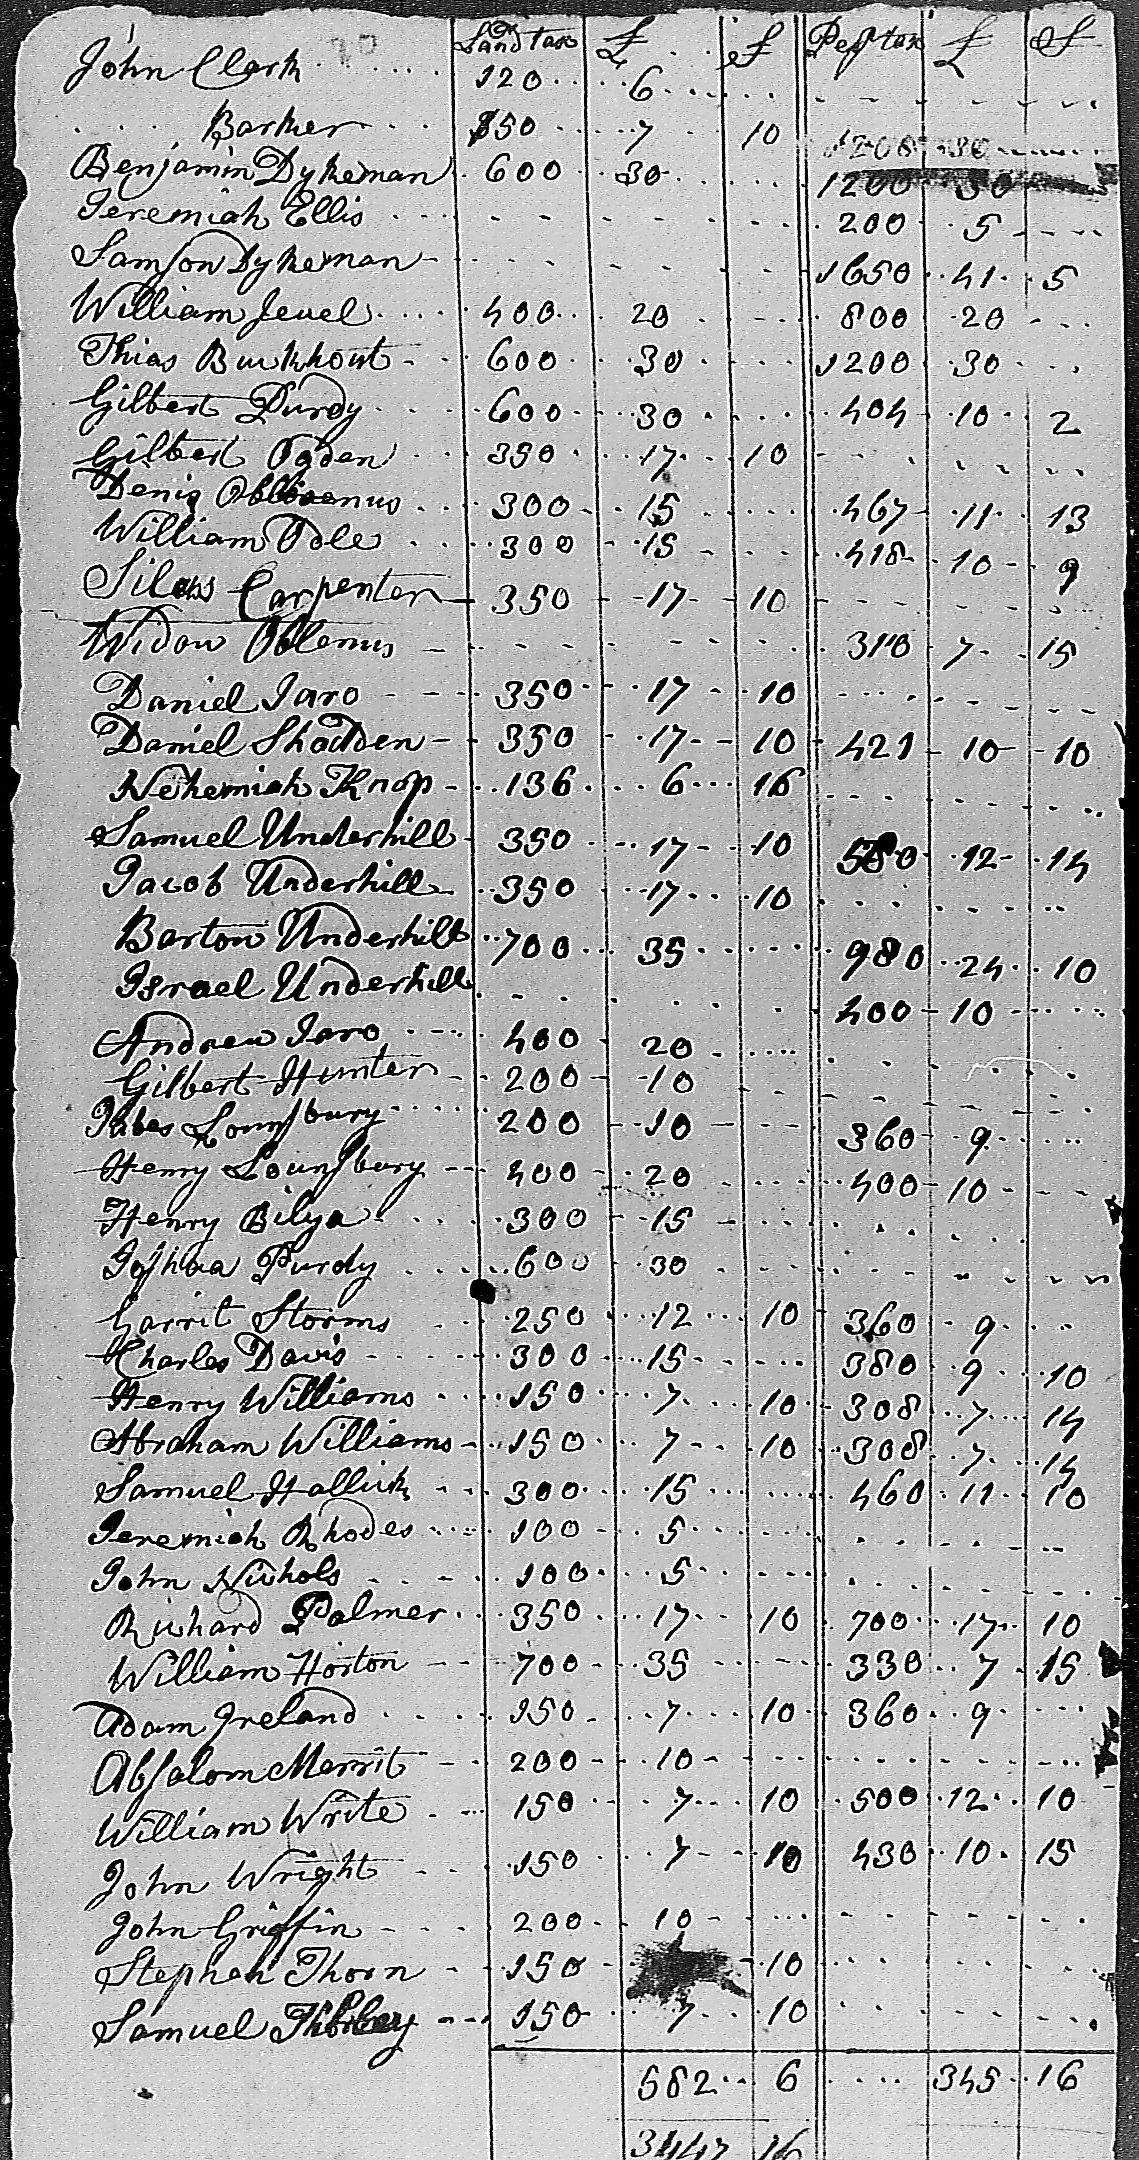 Land tax £ S Persl tax £ S
John Clerk 120 6
Barker 150 7 10 1200 30
Benjamin Dykeman 600 30 1200 30
Jeremiah Ellis 200 5
Samson Dykeman 1650 41 5
William Jewel 400 20 800 20
Thias Buckhout 600 30 1200 30
Gilbert Purdy 600 30 404 10 2
Gilbert Ogden 350 17 10
Denis 300 15 467 11 13
William Odle 300 15 418 10 9
Silas Carpenter 350 17 10
Widow Oblenus 310 7 15
Daniel Jaro 350 17 10
Daniel Shadden 350 17 10 421 10 10
Nehemiah Knap 136 6 16
Samuel Underhill 350 17 10 12 14
Jacob Underhill 350 17 10
Barton Underhill 700 35 980 24 10
Israel Underhill 400 10
Andrew Jaro 400 20
Gilbert Hunter 200 10
Lounsbury 200 10 360 9
Henry Lounsbury 400 20 400 10
Henry Bilya 300 15
Joshua Purdy 600 30
Garrit Storms 250 12 10 360 9
Charles Davis 300 15 380 9 10
Henry Williams 150 7 10 308 7 14
Abraham Williams 150 7 10 308 7 14
Samuel Hallick 300 15 460 11 10
Jeremiah Rhodes 100 5
John Nichols 100 5
Richard Palmer 350 17 10 700 17 10
William Horton 700 35 330 7 15
Adam Ireland 150 7 10 360 9
Absalom Merrit 200 10
William Write 150 7 10 500 12 10
John Wright 150 7 10 430 10 15
John Griffin 200 10
Stephen Thorn 150 10
Samuel 150 7 10
582 6 345 16
3447 16